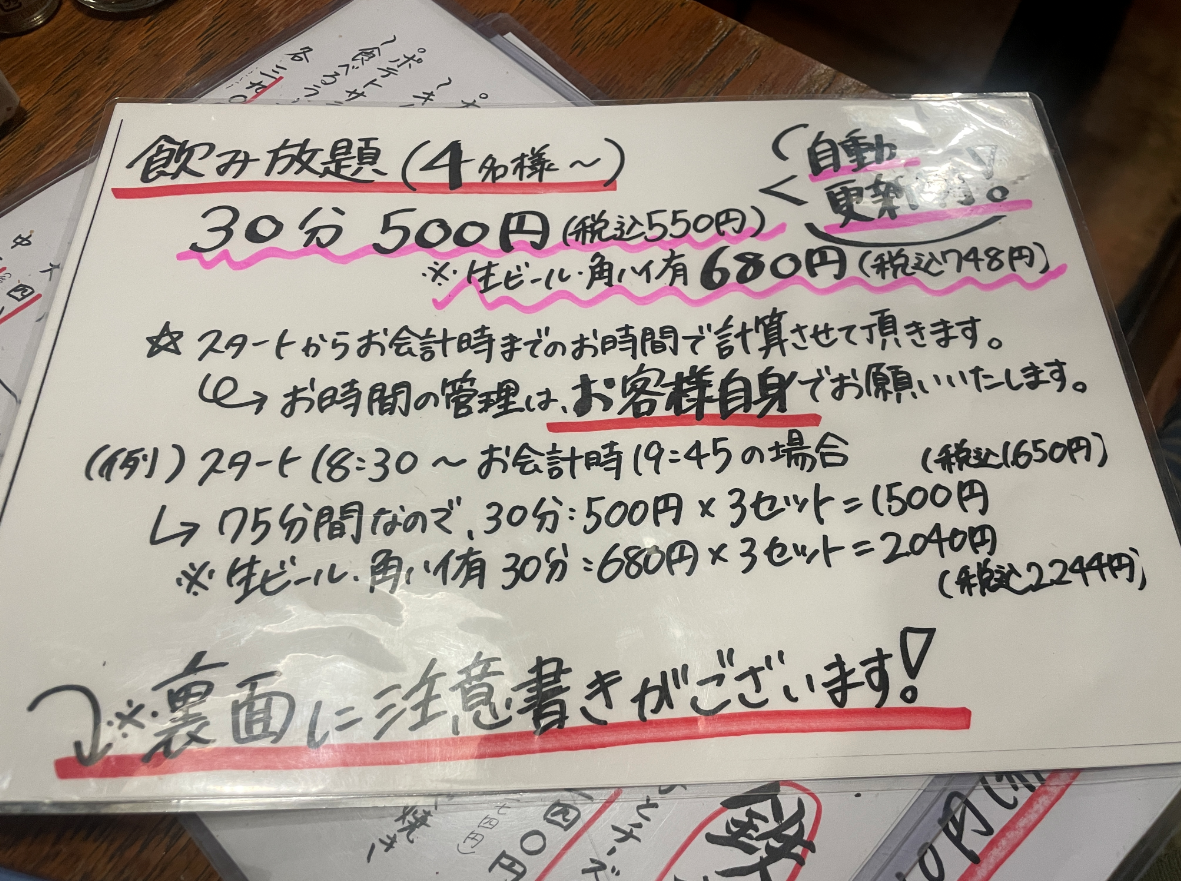 飲み放題(4名様〜)
自動
更新
30分 500円(税込550円)
※生ビール・角ハイ有 680円(税込748円)
☆ スタートからお会計時までのお時間で計算させて頂きます。
↳ お時間の管理は、お客様自身でお願いいたします。
(例) スタート18:30 〜 お会計時19:45の場合
(税込1650円)
↳ 75分間なので、30分:500円×3セット=1500円
※生ビール・角ハイ有 30分:680円×3セット=2040円
(税込2244円)
※裏面に注意書きがございます!